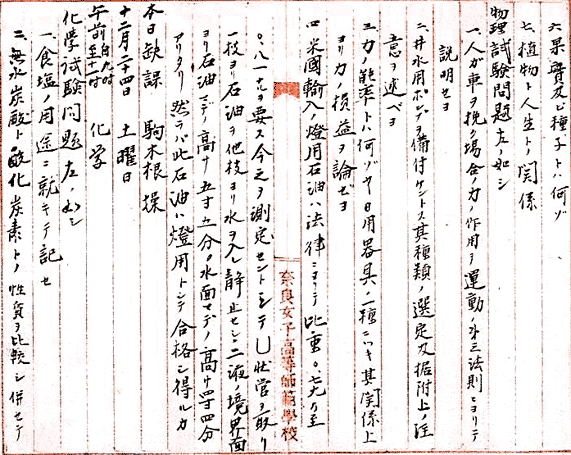 六 果實及ビ種子トハ何ゾ
七 植物ト人生トノ関係
物理試験問題左ノ如シ
一、人ガ車ヲ挽ク場合ノ力ノ作用ヲ運動ノ第三法則ニヨリテ
説明セヨ
二、井水用ポンプヲ備付ケントス其種類ノ選定及据附上ノ注
意ヲ述ベヨ
三、力ノ能率トハ何ゾヤ日用器具ノ二種ニツキ其関係上
ヨリ力ノ損益ヲ論ゼヨ
四 米國輸入ノ燈用石油ハ法律ニヨリテ比重〇.七九乃至
〇.八一ナルヲ要ス今之ヲ測定セントシテU状管ヲ取リ
一枝ヨリ石油ヲ他枝ヨリ水ヲ入レ静止セシニ二液ノ境界面
ヨリ石油ニテノ高サ五寸五分ノ水面マデノ高サ四寸四分
アリタリ 然ラバ此石油ハ燈用トシテ合格シ得ルカ
本日缺課 駒木根 操
十二月二十四日 土曜日
午前自九時至十一時 化学
化学試験問題左ノ如シ
一、食塩ノ用途ニ就キテ記セ
二、無水炭酸ト酸化炭素トノ性質ヲ比較シ併セテ
奈良女子高等師範學校